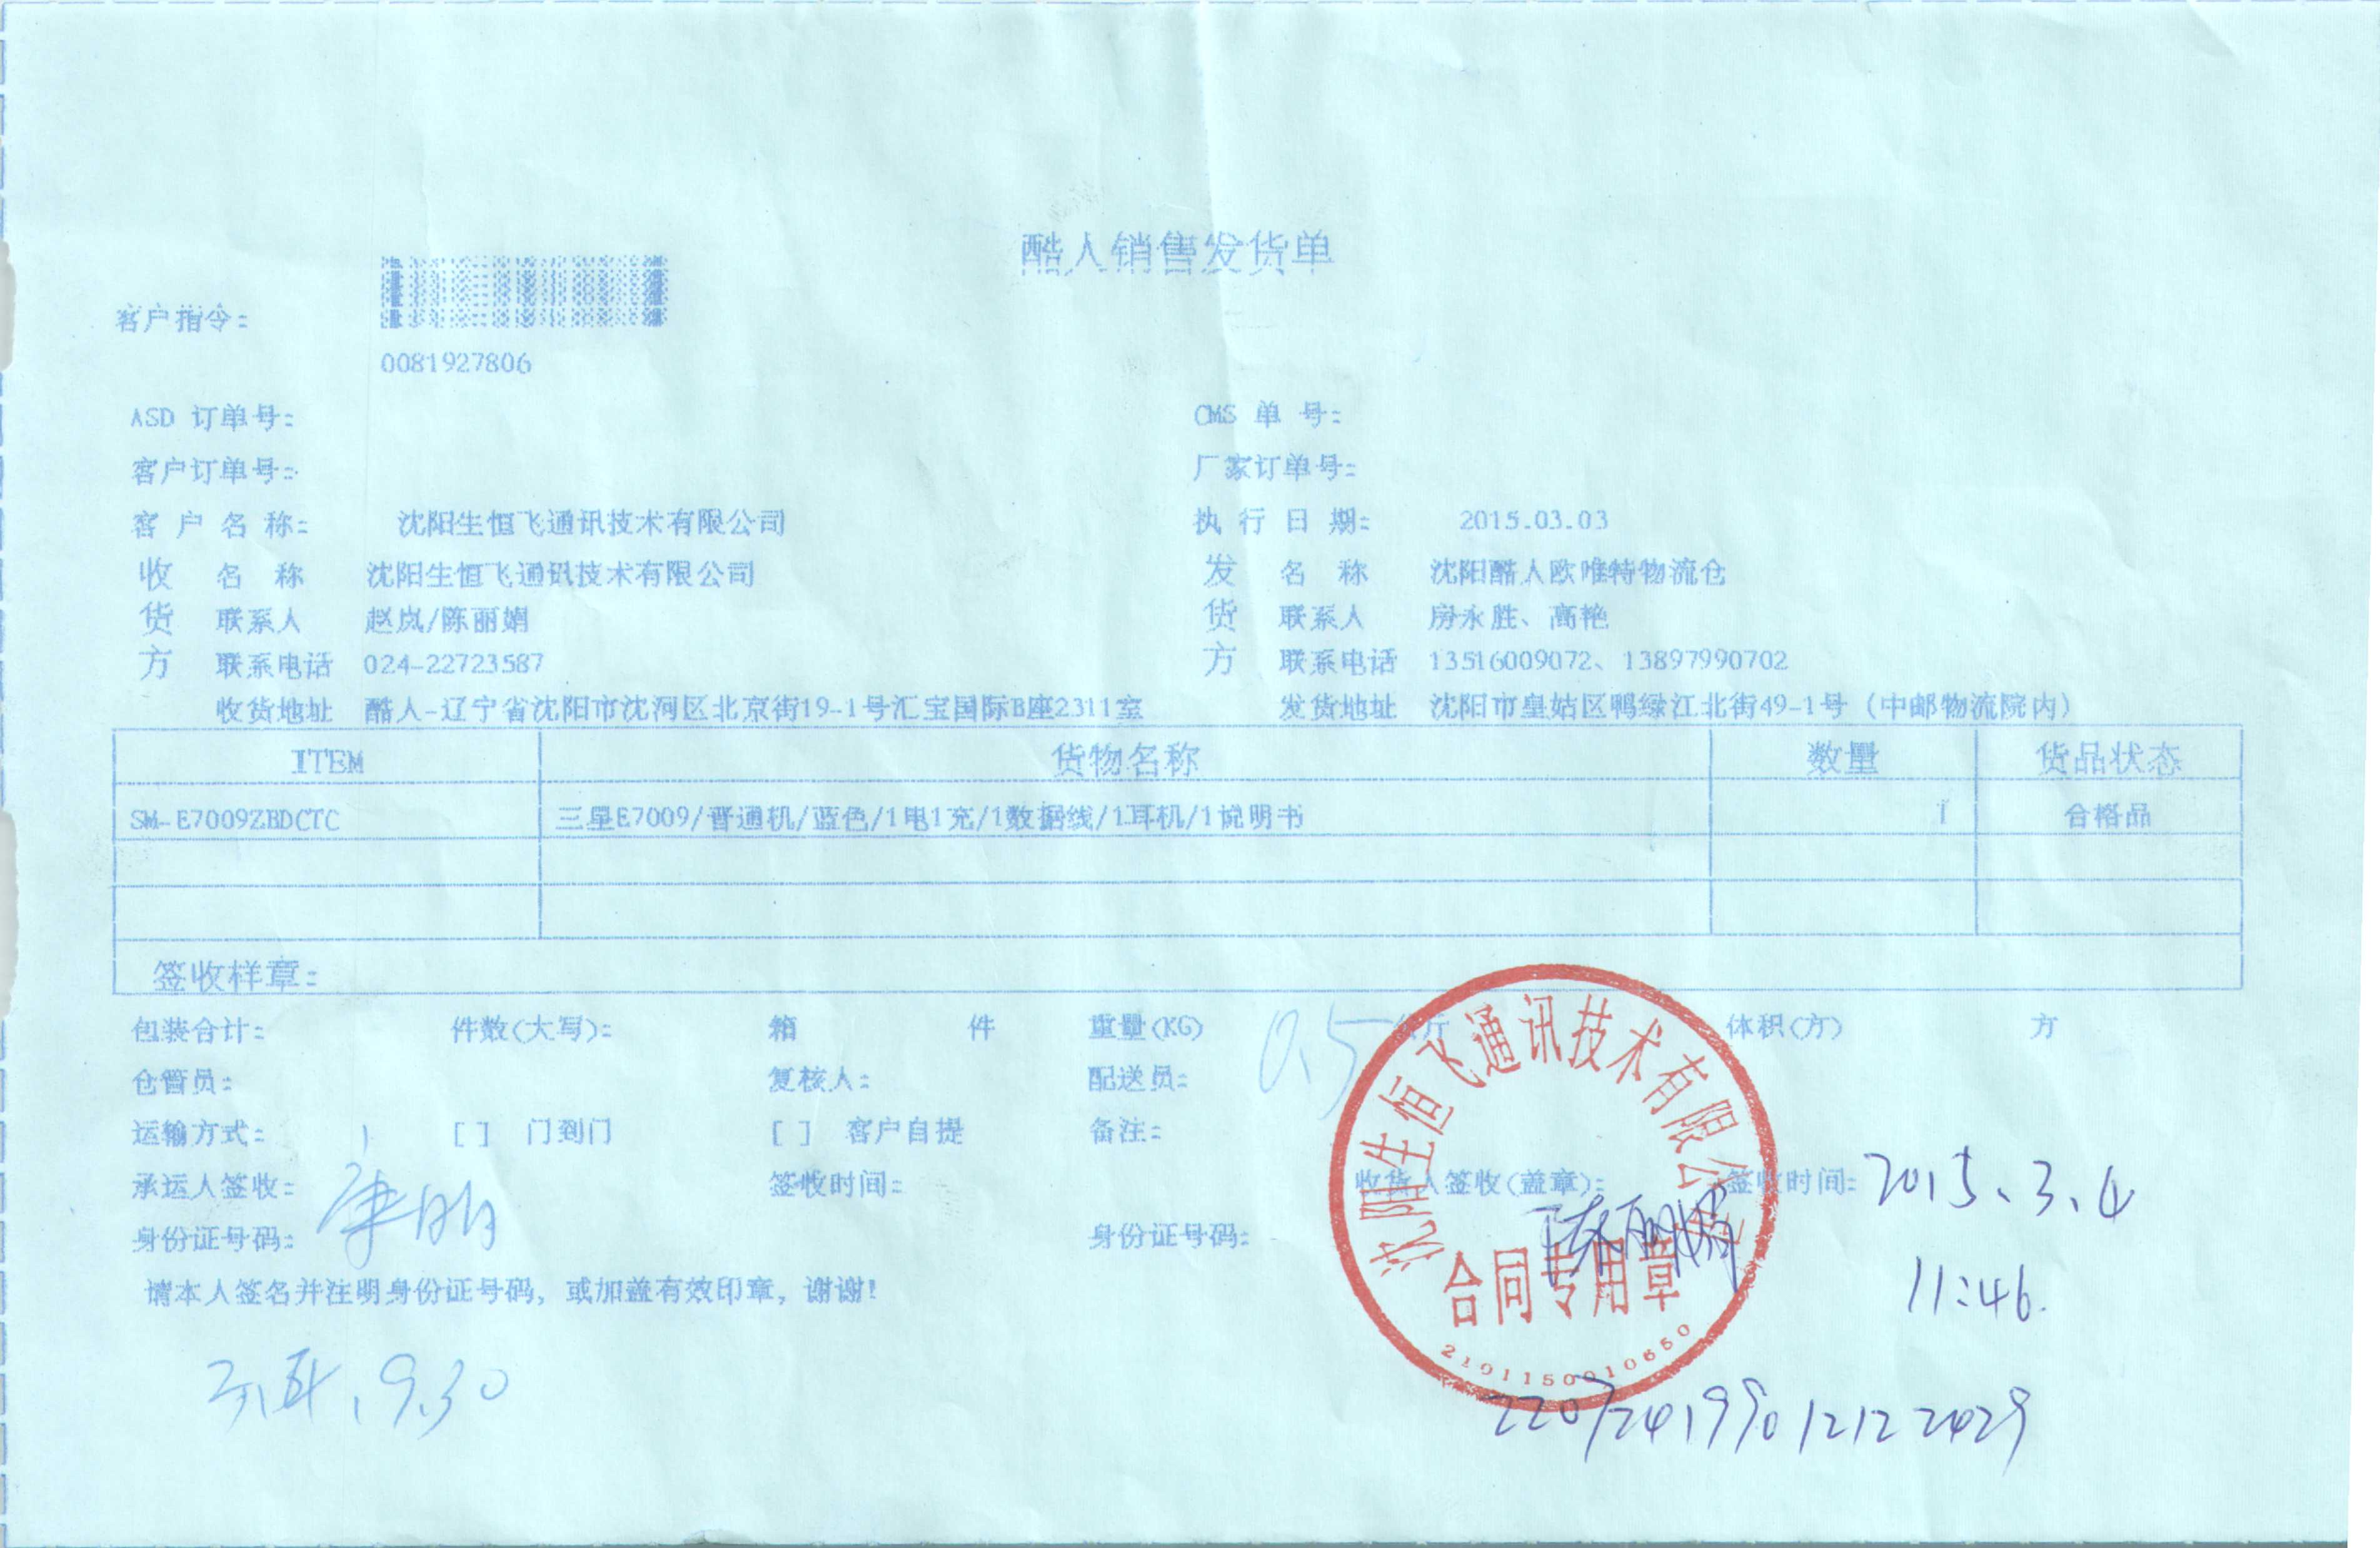 酷人销售发货单
客户指令：
0081927806
ASD 订单号： CMS 单 号：
客户订单号： 厂家订单号：
客 户 名 称： 沈阳生恒飞通讯技术有限公司 执 行 日 期： 2015.03.03
收 名 称 沈阳生恒飞通讯技术有限公司 发 名 称 沈阳酷人欧唯特物流仓
货 联系人 赵岚/陈丽娟 货 联系人 房永胜、高艳
方 联系电话 024-22723587 方 联系电话 13516009072、13897990702
收货地址 酷人-辽宁省沈阳市沈河区北京街19-1号汇宝国际B座2311室 发货地址 沈阳市皇姑区鸭绿江北街49-1号（中邮物流院内）
ITEM 货物名称 数量 货品状态
SM-E7009ZBDCTC 三星E7009/普通机/蓝色/1电1充/1数据线/1耳机/1说明书 1 合格品
签收样章：
包装合计： 件数(大写)： 箱 件 重量(KG) 0.5 公斤 体积(方) 方
仓管员： 复核人： 配送员：
运输方式： [ ] 门到门 [ ] 客户自提 备注：
承运人签收： 签收时间： 收货人签收(盖章)： 陈丽娟 签收时间： 2015.3.4
11:46.
身份证号码： 身份证号码：
请本人签名并注明身份证号码，或加盖有效印章，谢谢！
沈阳生恒飞通讯技术有限公司
合同专用章
2101150010650
9.30
220724199012122429